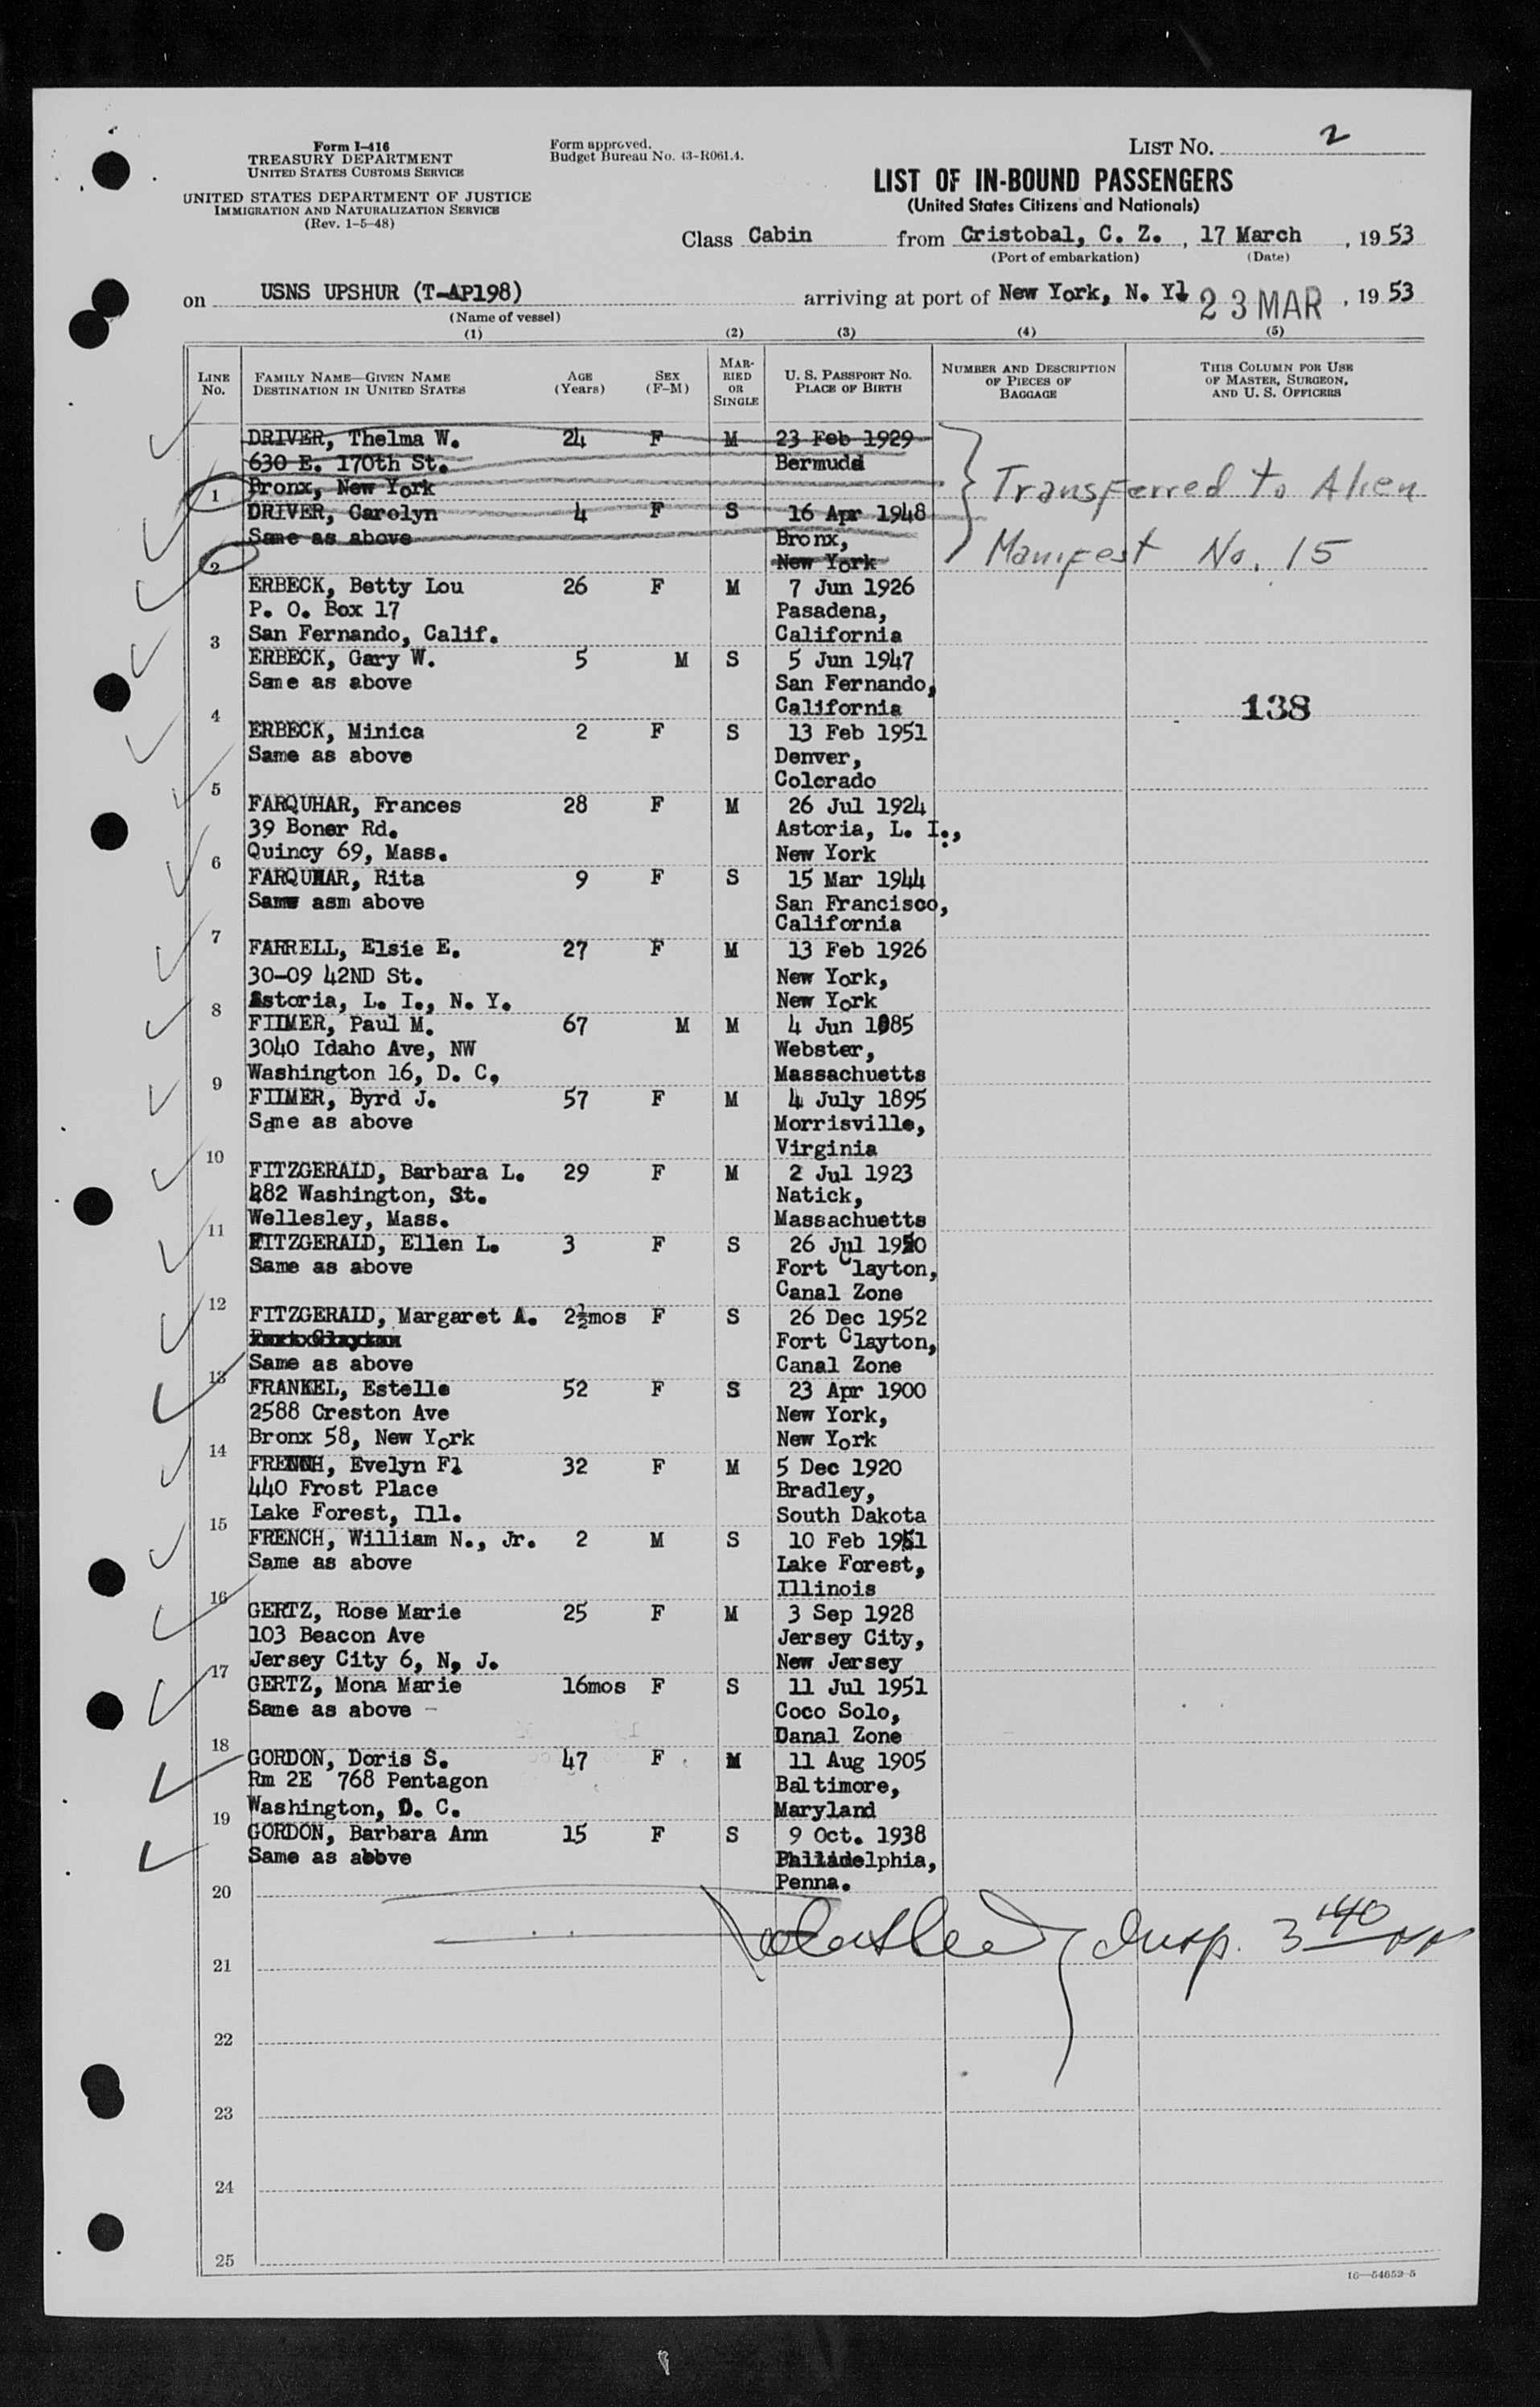 Form I-416
TREASURY DEPARTMENT
UNITED STATES CUSTOMS SERVICE
UNITED STATES DEPARTMENT OF JUSTICE
IMMIGRATION AND NATURALIZATION SERVICE
(Rev. 1-5-48)
Form approved.
Budget Bureau No. 43-R061.4.
LIST NO. 2
LIST OF IN-BOUND PASSENGERS
(United States Citizens and Nationals)
Class Cabin from Cristobal, C. Z., 17 March, 1953
(Port of embarkation) (Date)
on USNS UPSHUR (T-AP198) arriving at port of New York, N. Yl 23 MAR, 1953
(Name of vessel)
(1) (2) (3) (4) (5)
LINE NO. FAMILY NAME—GIVEN NAME DESTINATION IN UNITED STATES AGE (Years) SEX (F-M) MARRIED OR SINGLE U. S. PASSPORT NO. PLACE OF BIRTH NUMBER AND DESCRIPTION OF PIECES OF BAGGAGE THIS COLUMN FOR USE OF MASTER, SURGEON, AND U. S. OFFICERS
DRIVER, Thelma W. 24 F M 23 Feb 1929
630 E. 170th St. Bermuda
1 Bronx, New York
Transferred to Alien
DRIVER, Carolyn 4 F S 16 Apr 1948
Same as above Bronx,
2 New York
Manifest No. 15
ERBECK, Betty Lou 26 F M 7 Jun 1926
P. O. Box 17 Pasadena,
3 San Fernando, Calif. California
ERBECK, Gary W. 5 M S 5 Jun 1947
Same as above San Fernando,
4 California
138
ERBECK, Minica 2 F S 13 Feb 1951
Same as above Denver,
5 Colorado
FARQUHAR, Frances 28 F M 26 Jul 1924
39 Boner Rd. Astoria, L. I.,
6 Quincy 69, Mass. New York
FARQUHAR, Rita 9 F S 15 Mar 1944
Same asm above San Francisco,
7 California
FARRELL, Elsie E. 27 F M 13 Feb 1926
30-09 42ND St. New York,
8 Astoria, L. I., N. Y. New York
FIIMER, Paul M. 67 M M 4 Jun 1885
3040 Idaho Ave, NW Webster,
9 Washington 16, D. C, Massachuetts
FIIMER, Byrd J. 57 F M 4 July 1895
Same as above Morrisville,
10 Virginia
FITZGERALD, Barbara L. 29 F M 2 Jul 1923
282 Washington, St. Natick,
11 Wellesley, Mass. Massachuetts
FITZGERALD, Ellen L. 3 F S 26 Jul 1950
Same as above Fort Clayton,
12 Canal Zone
FITZGERALD, Margaret A. 2½mos F S 26 Dec 1952
Fort Clayton,
Same as above Canal Zone
13
FRANKEL, Estelle 52 F S 23 Apr 1900
2588 Creston Ave New York,
14 Bronx 58, New York New York
FRENCH, Evelyn Fl 32 F M 5 Dec 1920
440 Frost Place Bradley,
15 Lake Forest, Ill. South Dakota
FRENCH, William N., Jr. 2 M S 10 Feb 1951
Same as above Lake Forest,
16 Illinois
GERTZ, Rose Marie 25 F M 3 Sep 1928
103 Beacon Ave Jersey City,
17 Jersey City 6, N, J. New Jersey
GERTZ, Mona Marie 16mos F S 11 Jul 1951
Same as above - Coco Solo,
18 Danal Zone
GORDON, Doris S. 47 F M 11 Aug 1905
Rm 2E 768 Pentagon Baltimore,
19 Washington, D. C. Maryland
GORDON, Barbara Ann 15 F S 9 Oct. 1938
Same as above Philadelphia,
20 Penna.
Insp. 3
21
22
23
24
25
16—54652-5